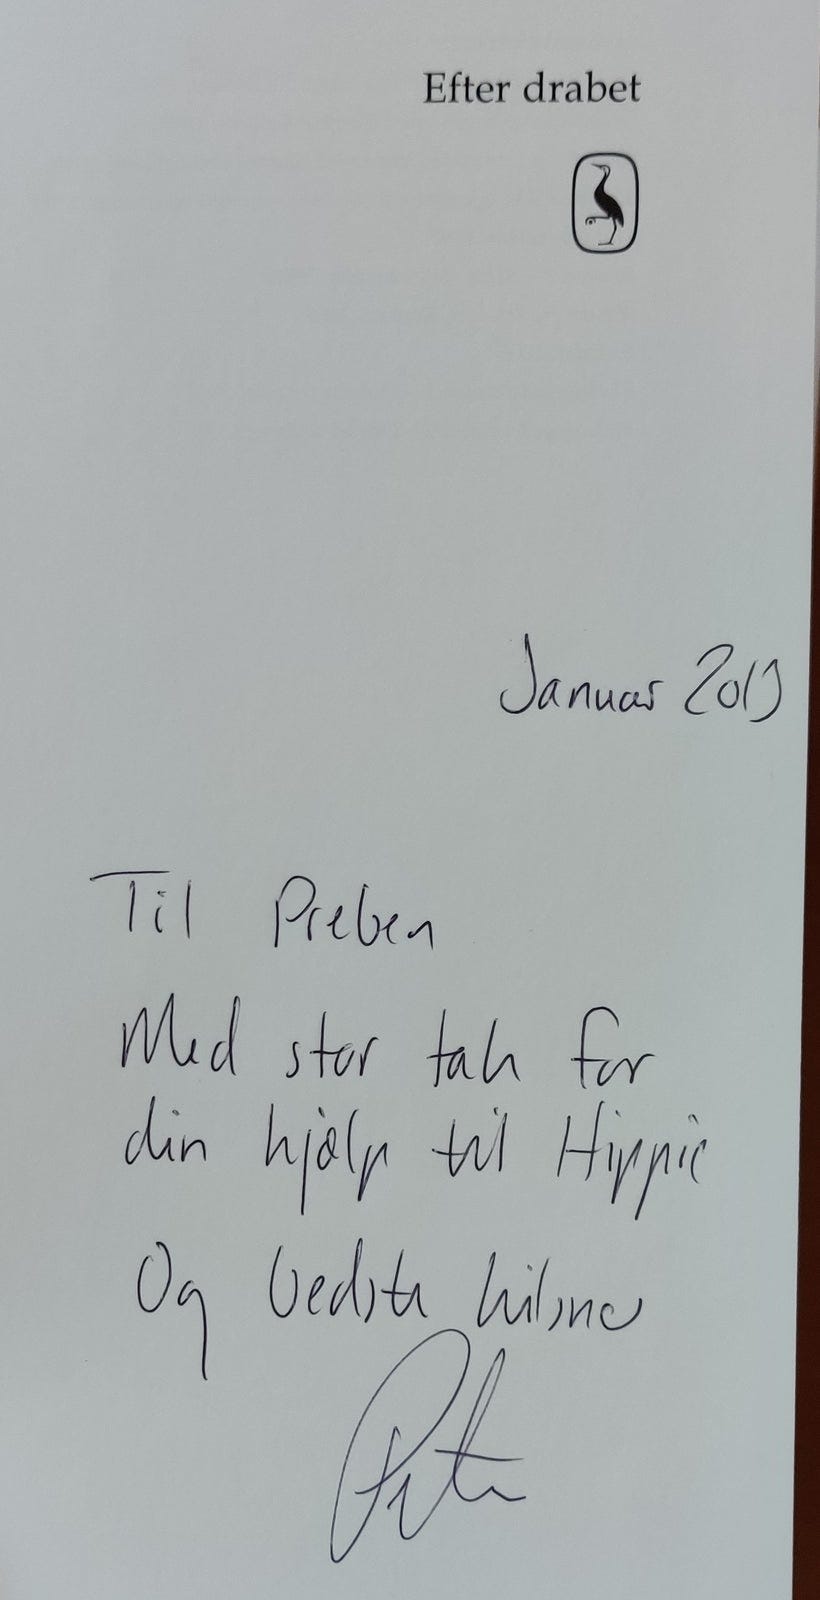 Efter drabet
Januar 2019
Til Preben
Med stor tak for
din hjælp til Hippie
Og bedste hilsner
Peter